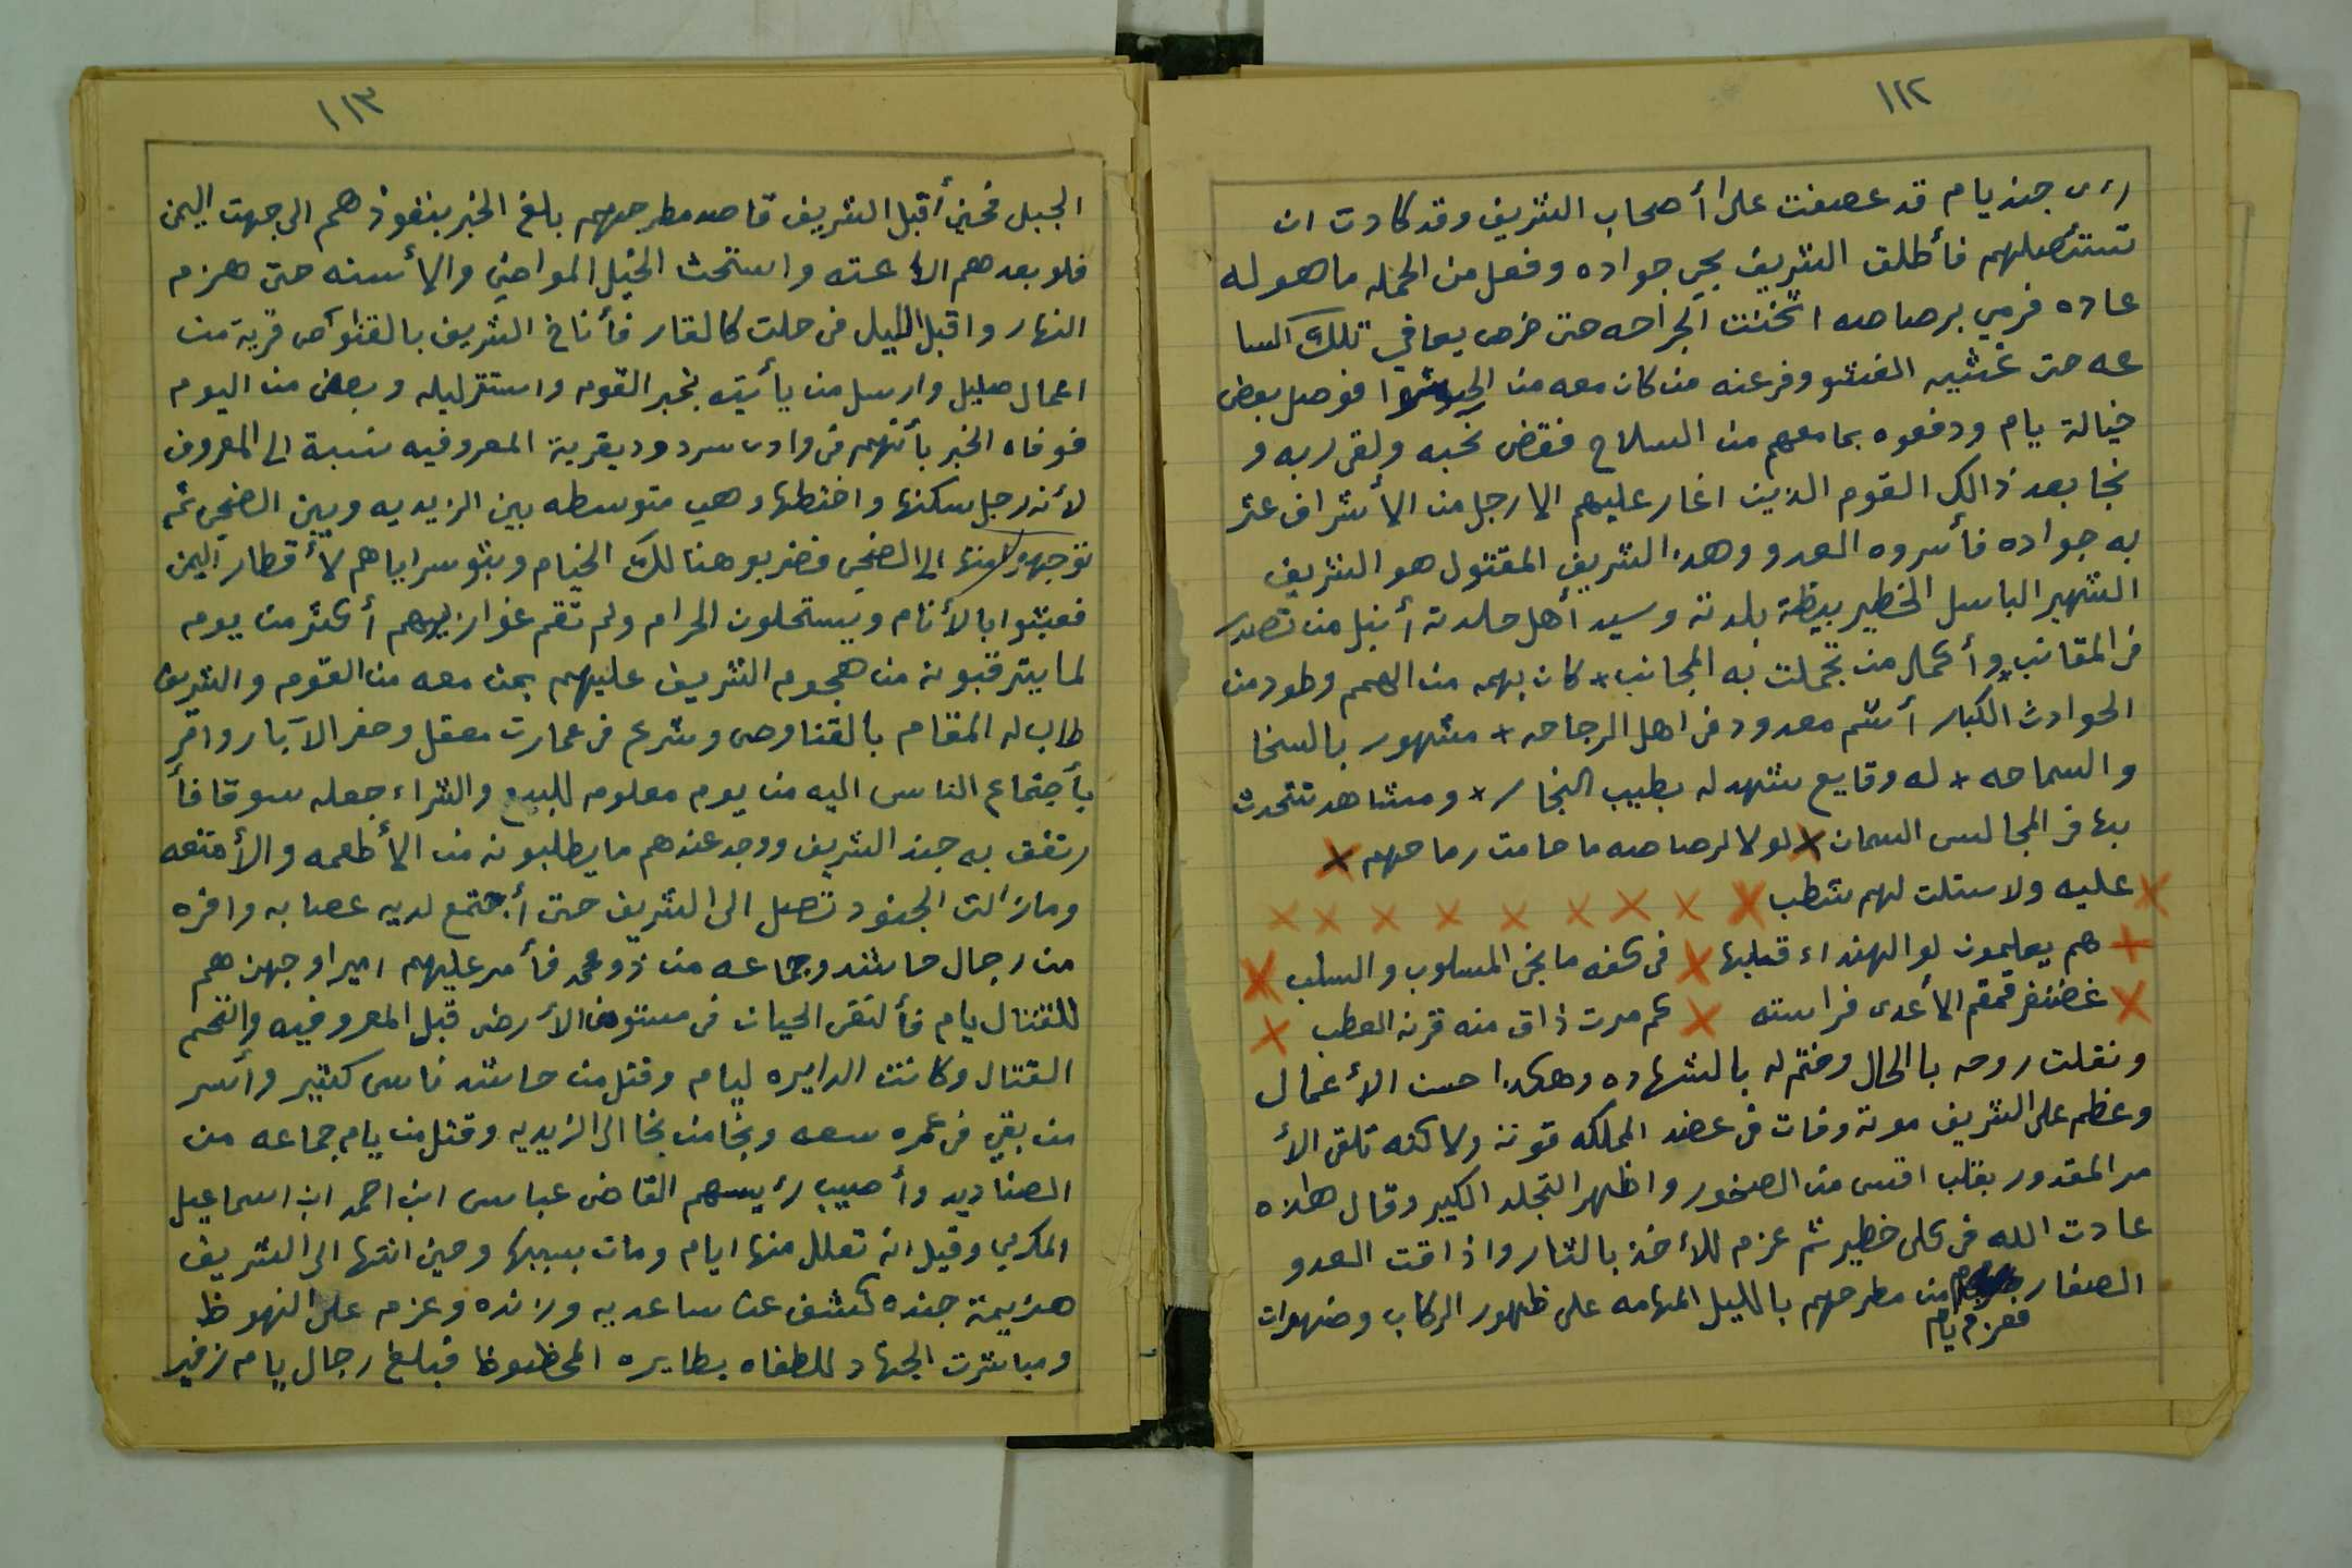 ١١٢
رءى جند يام قد عصفت على أصحاب الشريف وقد كادت ان
تستئصلهم فأطلق الشريف يحي جواده وفعل من الحمله ما هو له
عاده فرمي برصاصه اثخنت الجراحه حتى خرص يعافي تلك السا
عه حتى غشيه الغشو وفر عنه من كان معه من الجيوش فوصل بعض
خيالة يام ودفعوه بما معهم من السلاح فقضى نحبه ولقى ربه و
نجا بعد ذالك القوم الذين اغار عليهم الا رجل من الأشراف عثر
به جواده فأسروه العدو وهذا الشريف المقتول هو الشريف
الشهير الباسل الخطير بيظة بلدته وسيد أهل جلدته أنبل من تصدر
في المقانب وأكمل من تجملت به المجانب + كان بهمه من الهمم وطود من
الحوادث الكبار أشم معدود في اهل الرجاحه + مشهور بالسخا
والسماحه + له وقايع تشهد له بطيب النجار + ومشاهد تتحدث
بها في المجالس السمان × لولا الرصاصه ما حامت رماحهم ×
× عليه ولا ستلت لهم شطب × × × × × × × × ×
× هم يعلمون لو الهنداء قبلها × في كفه ما نجى المسلوب والسلب ×
× غضنفر قمقم الأعدى فراسته × كم مرت ذاق منه قرنه العطب ×
ونقلت روحه بالحال وختم له بالشهاده وهكذا احسن الأعمال
وعظم على الشريف موته وفات في عضد المملكه قوته ولاكنه تلقى الأ
مر المقدور بقلب اقسى من الصخور واظهر التجلد الكبير وقال هاذه
عادت الله في كل خطير ثم عزم للأخذ بالثار واذاقت العدو
الصغار فعزم يام من مطرحهم بالليل المهامه على ظهور الركاب وصهوات
١١٣
الجبل فحين أقبل الشريف قاصد مطرحهم بلغ الخبر بنفوذهم الى جهت اليمن
فلو بعدهم الأعنه واستحث الخيل المواضي والأسنه حتى هزم
النهار واقبل الليل في حلت كالقار فأناخ الشريف بالقناوص قرية من
اعمال صليل وارسل من يأتيه بخبر القوم واستقر ليله وبعض من اليوم
فوفاه الخبر بأنهم في وادى سردود بقرية المعروفيه نسبة الى المعروف
لأنه رجل سكنها واختطها وهي متوسطه بين الزيديه وبين الضحي ثم
توجهو امنها الى الضحي فضربو هنالك الخيام وبثو سراياهم لأقطار اليمن
فعبثوا بالأنام ويستحلون الحرام ولم تقم غوازيهم أكثر من يوم
لما يترقبونه من هجوم الشريف عليهم بمن معه من القوم والشريف
طاب له المقام بالقناوص وشرع في عمارت معقل وحفر الآبار واقر
بأجتماع الناس اليه من يوم معلوم للبيع والشراء جعله سوقا فأ
رتفق به جند الشريف ووجد عندهم ما يطلبونه من الأطعمه والأمتعه
ومازالت الجنود تصل الى الشريف حتى أجتمع لديه عصابه وافره
من رجال حاشد وجماعه من ذو محمد فأمر عليهم اميرا وجهزهم
للقتال يام فألتقى الحيان في مستوى الأرض قبل المعروفيه والتحم
القتال وكانت الدايره ليام وقتل من حاشد ناس كثير وأسر
من بقي في عمره سعه ونجا من نجا الى الزيديه وقتل من يام جماعه من
الصناديد وأصيب رئيسهم القاضي عباس ابن احمد ابن اسماعيل
المكرمي وقيل انه تعلل منها ايام ومات بسببها وحين انتها الى الشريف
هزيمة جنده كشف عن ساعديه وزنده وعزم على النهوظ
ومباشرت الجهاد للطغاه بطايره المحظوظ فبلغ رجال يام زفير